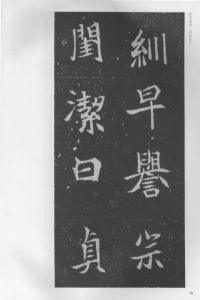 訓早譽宗
閨潔曰貞